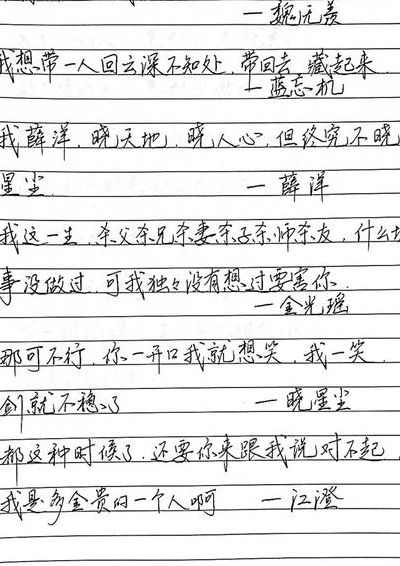 一魏无羡
我想带一人回云深不知处，带回去 藏起来
一蓝忘机
我薛洋，晓天地，晓人心，但终究不晓
星尘． 一薛洋
我这一生，杀父杀兄杀妻杀子杀师杀友，什么坏
事没做过，可我独々没有想过要害你．
一金光瑶
那可不行，你一开口我就想笑，我一笑，
剑就不稳了 一晓星尘
都这种时候了，还要你来跟我说对不起，
我是多金贵的一个人啊 一江澄